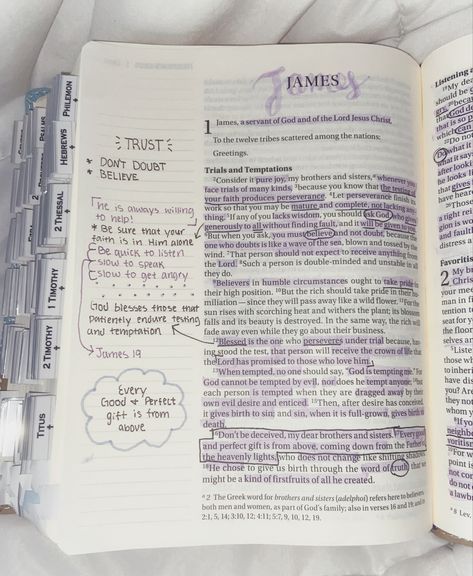 PHILEMON
HEBREWS
PSALMS
2 THESSAL
1 TIMOTHY
2 TIMOTHY
TITUS
TRUST
* DON'T DOUBT
* BELIEVE
He is always willing
to help!
* Be sure that your
faith is in Him alone
Be quick to listen
slow to speak
slow to get angry
God blesses those that
patiently endure testing
and temptation
James 19
Every
Good & Perfect
gift is from
above
JAMES
James
1 James, a servant of God and of the Lord Jesus Christ,
To the twelve tribes scattered among the nations:
Greetings.
Trials and Temptations
2Consider it pure joy, my brothers and sisters, whenever you
face trials of many kinds, 3because you know that the testing of
your faith produces perseverance. 4Let perseverance finish its
work so that you may be mature and complete, not lacking any-
thing. 5If any of you lacks wisdom, you should ask God, who gives
generously to all without finding fault, and it will be given to you.
6But when you ask, you must believe and not doubt, because the
one who doubts is like a wave of the sea, blown and tossed by the
wind. 7That person should not expect to receive anything from
the Lord. 8Such a person is double-minded and unstable in all
they do.
9Believers in humble circumstances ought to take pride in
their high position. 10But the rich should take pride in their hu-
miliation — since they will pass away like a wild flower. 11For the
sun rises with scorching heat and withers the plant; its blossom
falls and its beauty is destroyed. In the same way, the rich will
fade away even while they go about their business.
12Blessed is the one who perseveres under trial because, hav-
ing stood the test, that person will receive the crown of life that
the Lord has promised to those who love him.
13When tempted, no one should say, "God is tempting me." For
God cannot be tempted by evil, nor does he tempt anyone; 14but
each person is tempted when they are dragged away by their
own evil desire and enticed. 15Then, after desire has conceived,
it gives birth to sin; and sin, when it is full-grown, gives birth to
death.
16Don't be deceived, my dear brothers and sisters. 17Every good
and perfect gift is from above, coming down from the Father of
the heavenly lights, who does not change like shifting shadows.
18He chose to give us birth through the word of truth, that we
might be a kind of firstfruits of all he created.
a 2 The Greek word for brothers and sisters (adelphoi) refers here to believers,
both men and women, as part of God's family; also in verses 16 and 19; and in
2:1, 5, 14; 3:10, 12; 4:11; 5:7, 9, 10, 12, 19.
Listening a
Favoritis